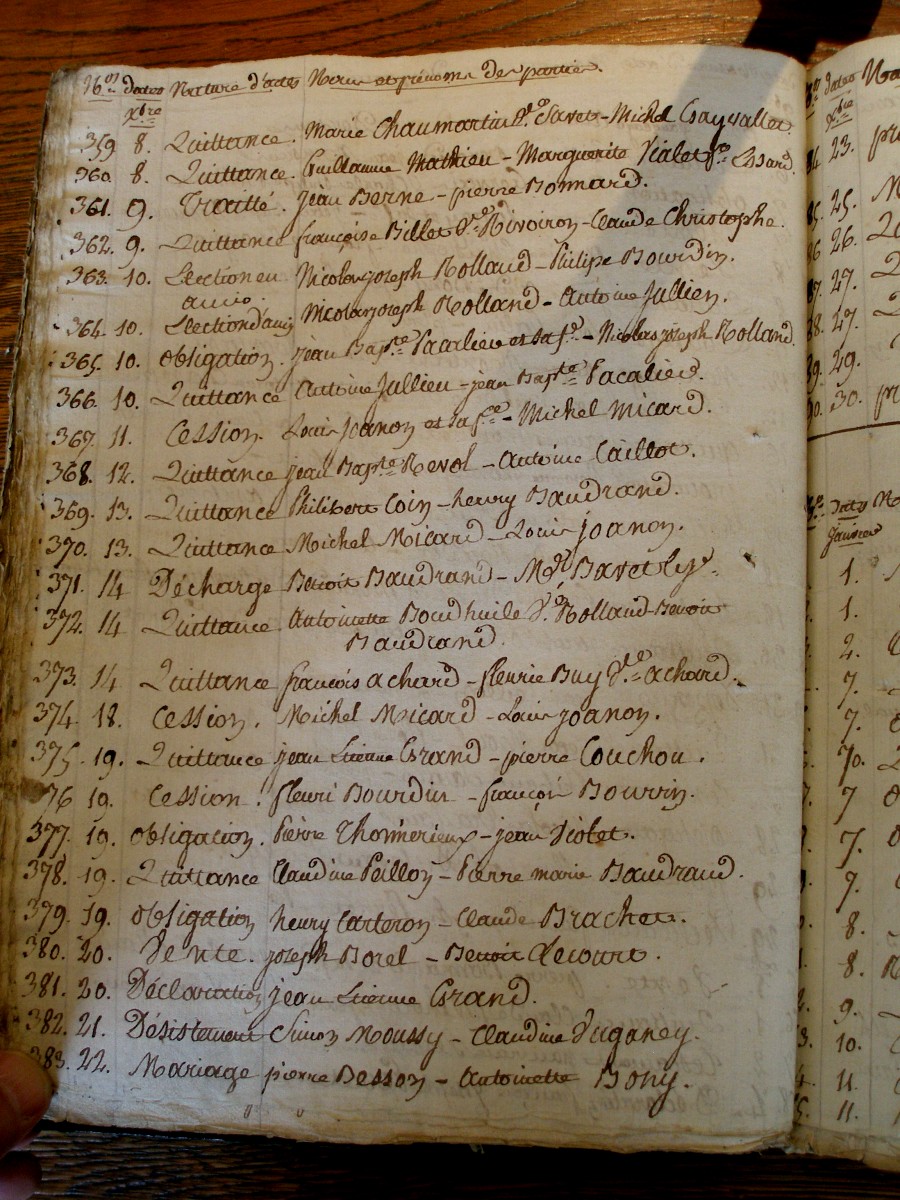 N.os dates Nature d'actes Noms et prénoms des parties.
xbre
359 8. Quittance. Marie Chaumartin Ve. Savet - Michel
360. 8. Quittance. Guillaume Mathieu - Marguerite Violet fe.
361. 9. Traitté. jean Berne - pierre Bonnard.
362. 9. Quittance françoise Billet Ve. Rivoiron - Claude Christophe.
363. 10. Election en Nicolas joseph Rolland - Philipe Bourdin.
amie.
364. 10. Election d'amis Nicolas joseph Rolland - Antoine jullien.
365. 10. obligation. jean Bapte. Pacalier et sa fe. - Nicolas joseph Rolland.
366. 10. Quittance Antoine jullien - jean Bapte. Pacalier.
367. 11. Cession. Louis joanon et sa fe. - Michel Micard.
368. 12. Quittance jean Bapte. Revol - Antoine Caillot.
369. 13. Quittance Philibert Coin - henry Baudrand.
370. 13. Quittance Michel Micard - Louis joanon.
371. 14 Décharge Benoit Baudrand - Mr. Bavet
372. 14 Quittance. Antoinette Boudhuile Ve. Rolland - Benoit
Baudrand.
373. 14 Quittance françois achard - fleurie Buy Ve. achard.
374 18. Cession. Michel Micard - Louis joanon.
375. 19. Quittance jean Etienne Grand - pierre Couchou.
76 19. Cession. fleuri Bourdin - françois Bourrin.
377. 19. obligation. Pierre Thomerieux - jean Violet.
378. 19. Quittance Claudine Peillon - Pierre marie Baudrand.
379. 19. obligation henry Carteron - Claude Brachet.
380. 20. Vente. joseph Borel - Benoit Lecourt.
381. 20. Déclaration jean Etienne Grand.
382. 21. Désistement Simon Moussy - Claudine
383. 22. Mariage pierre Besson - Antoinette Bony.
dates
xbre
23.
25.
26.
27.
27.
29.
30.
dates
Janvier
1.
1.
2.
7.
7.
7.
7
7.
7.
8.
8.
9.
10.
11.
11.